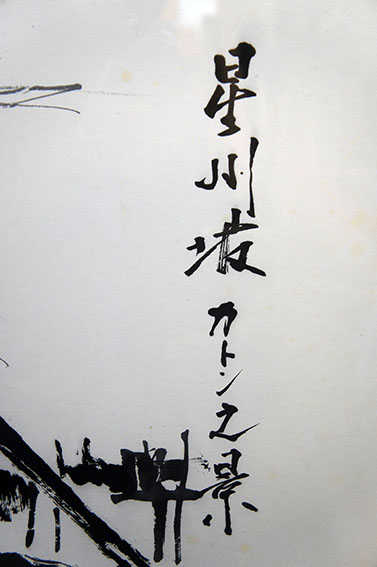 星川坡カトン之景